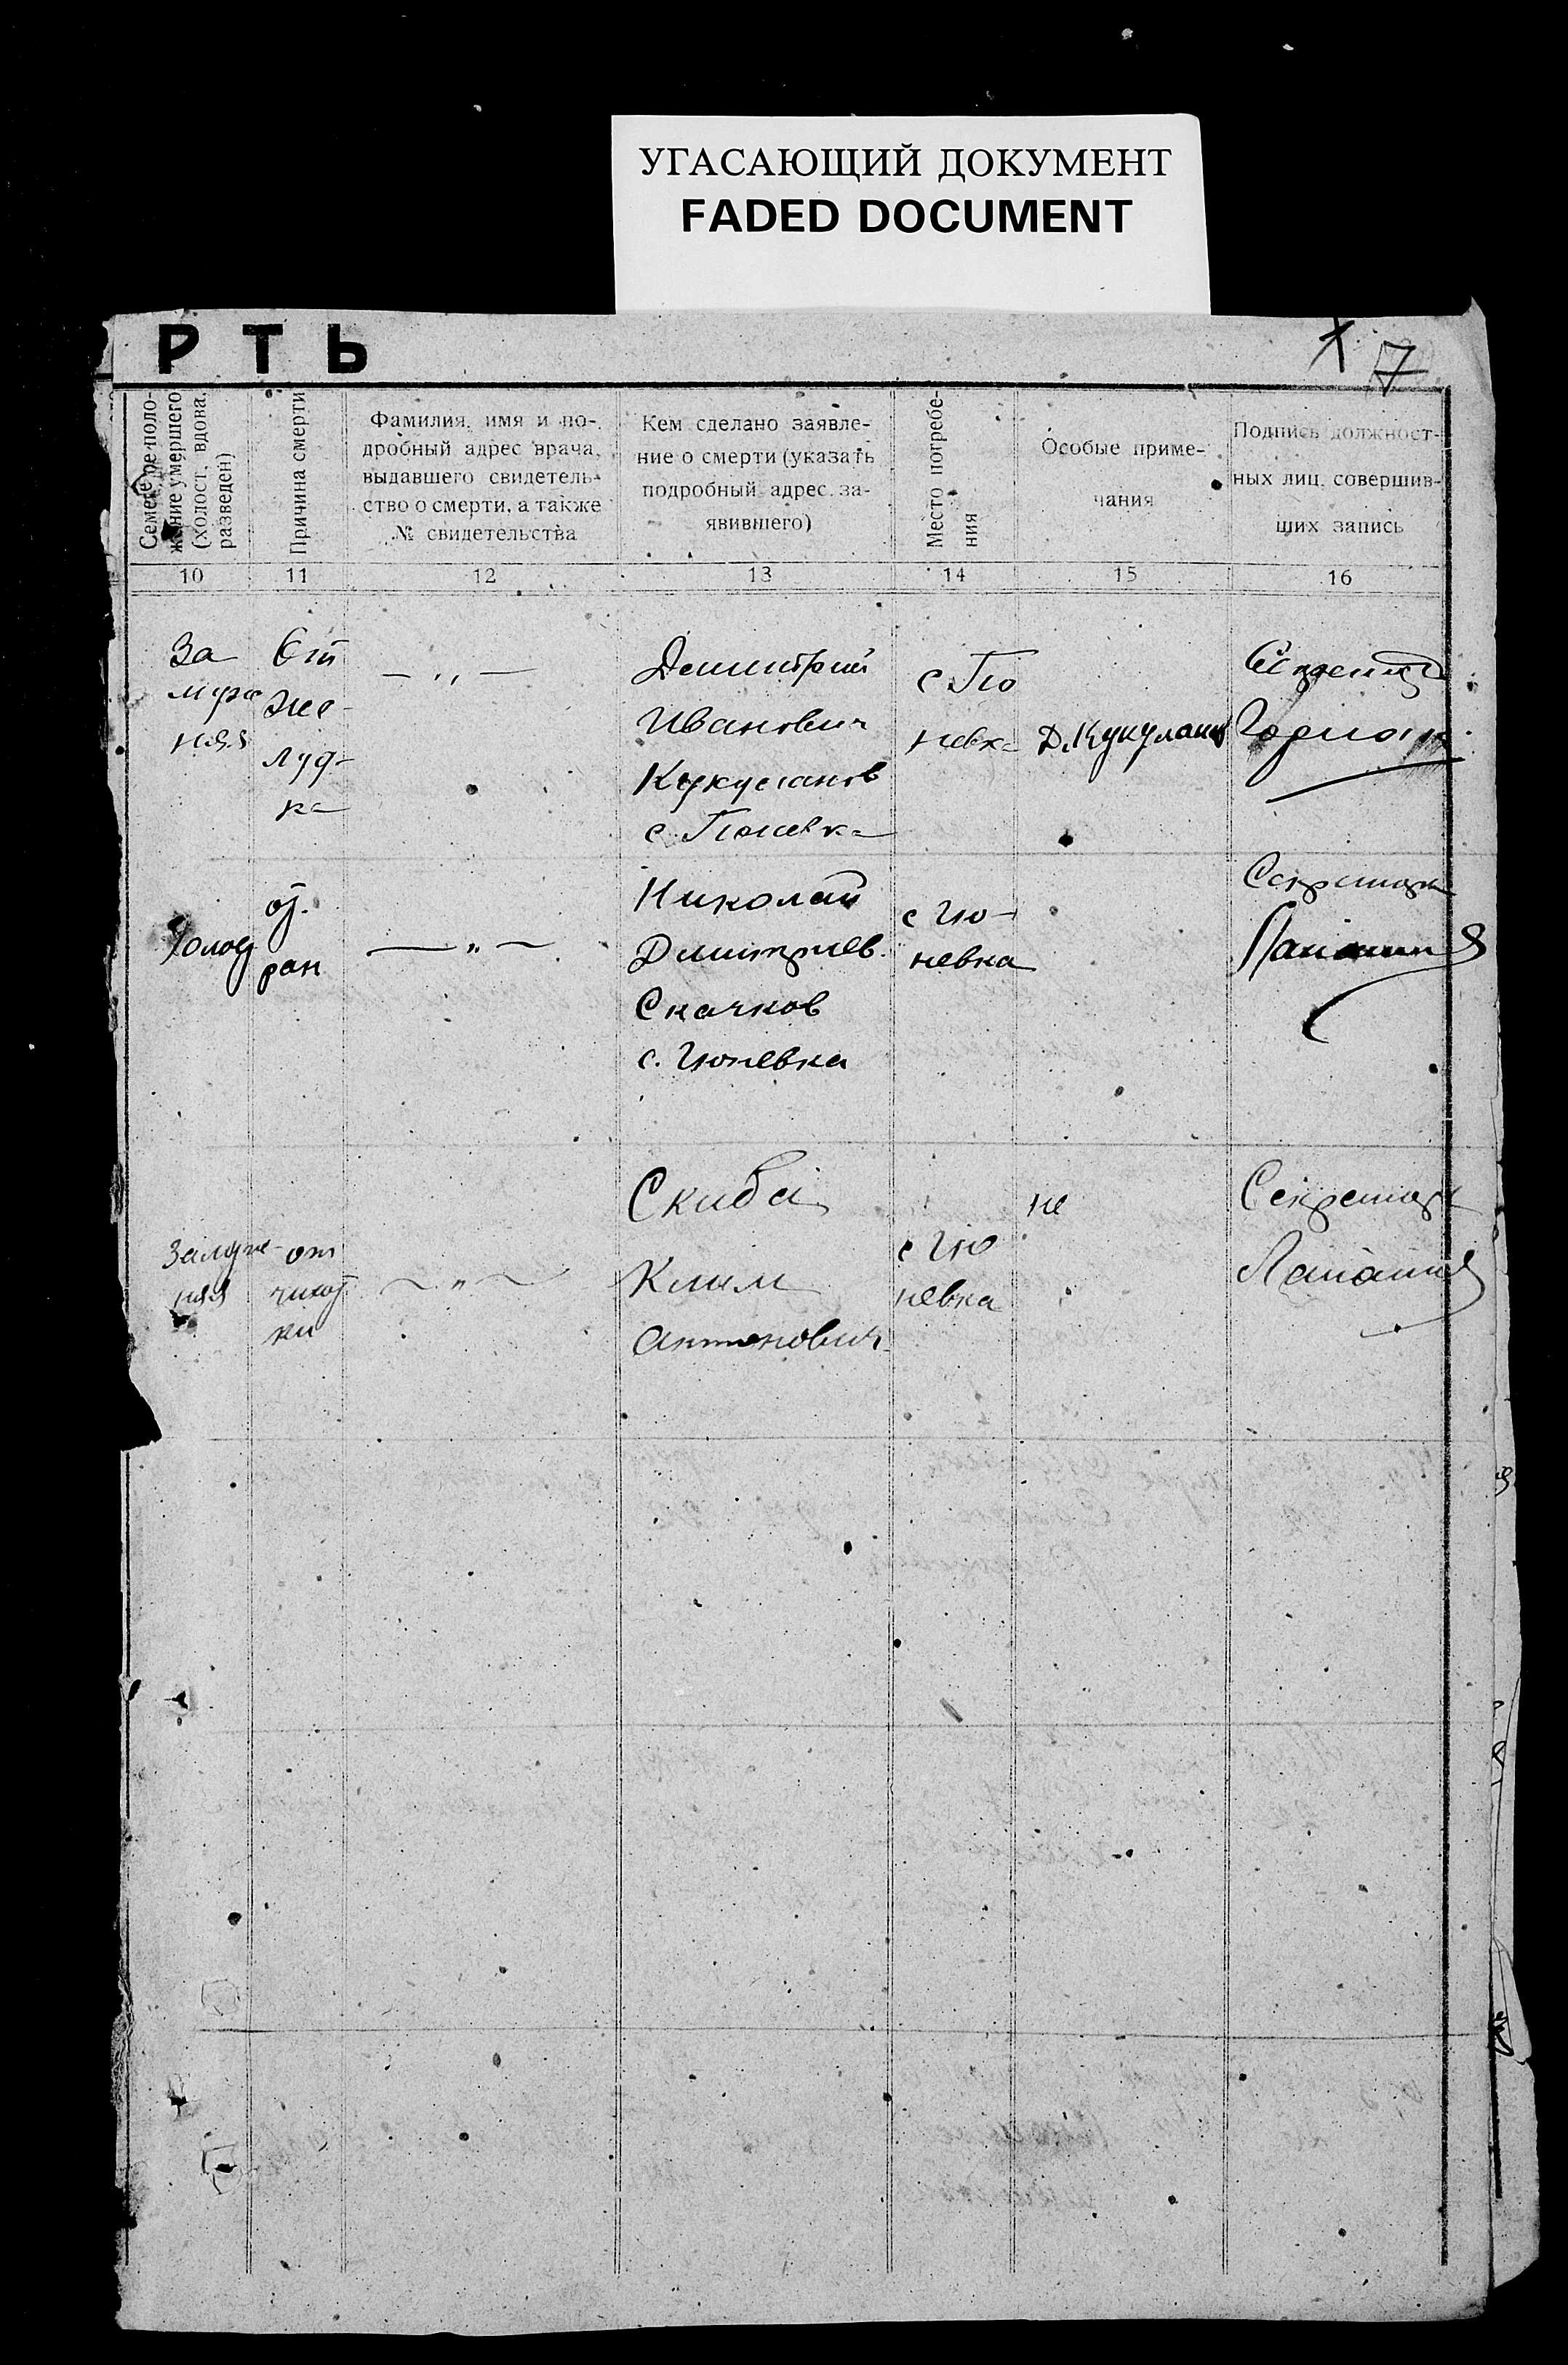 УГАСАЮЩИЙ ДОКУМЕНТ
FADED DOCUMENT
Р Т Ь
7
Семейное поло-
жение умершего
(холост, вдова,
разведен)
Причина смерти
Фамилия, имя и по-
дробный адрес врача,
выдавшего свидетель-
ство о смерти, а также
№ свидетельства
Кем сделано заявле-
ние о смерти (указать
подробный адрес за-
явившего)
Место погребе-
ния
Особые приме-
чания
Подпись должност-
ных лиц, совершив-
ших запись
10
11
12
13
14
15
16
За
муж
няя
От
же-
луд-
ка
— ,, —
Дмитрий
Иванович
Кукуланов
с.
с.
невка
Д. Кукуланов
Холос
от.
ран
— " —
Николай
Дмитриев.
Скачков
с. Гюневка
с Гю-
невка
Секретарь
Замуж-
няя
от
чахот
ки
— " —
Скиба
Клим
Антонович
с Гю
невка
не
Секретарь